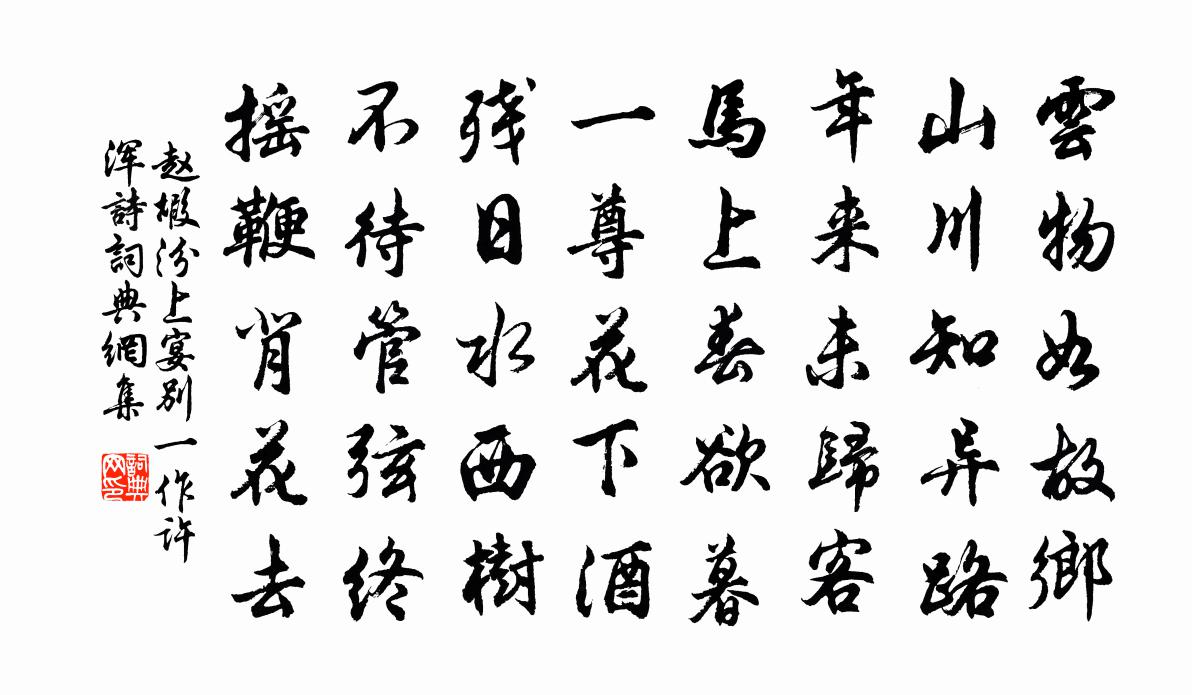 雲物如故鄉
山川知异路
年来未歸客
馬上春欲暮
一尊花下酒
残日水西樹
不待管弦终
摇鞭背花去
赵嘏汾上宴别一作许
浑詩詞典網集
詞典网印